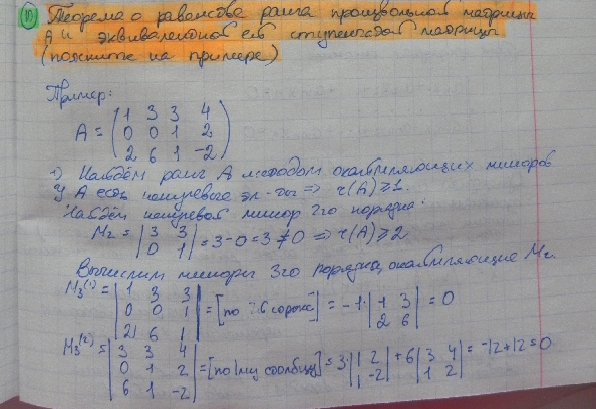 10) Теорема о равенстве ранга произвольной матрицы
А и эквивалентной ей ступенчатой матрицы
(поясните на примере)
Пример:
A = (1 3 3 4
0 0 1 2
2 6 1 -2)
1) Найдём ранг А методом окаймляющих миноров
У А есть ненулевые эл-ты => r(A) ≥ 1.
Найдём ненулевой минор 2го порядка:
M₂ = |3 3
0 1| = 3-0=3 ≠ 0 => r(A) ≥ 2
Вычислим миноры 3го порядка, окаймляющие M₂.
M₃⁽¹⁾ = |1 3 3
0 0 1
2 6 1| = [по 2й строке] = -1·|1 3
2 6| = 0
M₃⁽²⁾ = |3 3 4
0 1 2
6 1 -2| = [по 1му столбцу] = 3·|1 2
1 -2| + 6|3 4
1 2| = -12+12=0